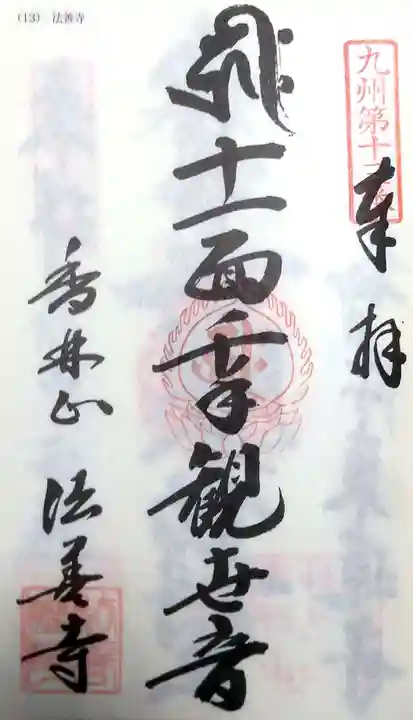 (13) 法善寺
九州第十三
奉拝
十一面千手観世音
香林山 法善寺